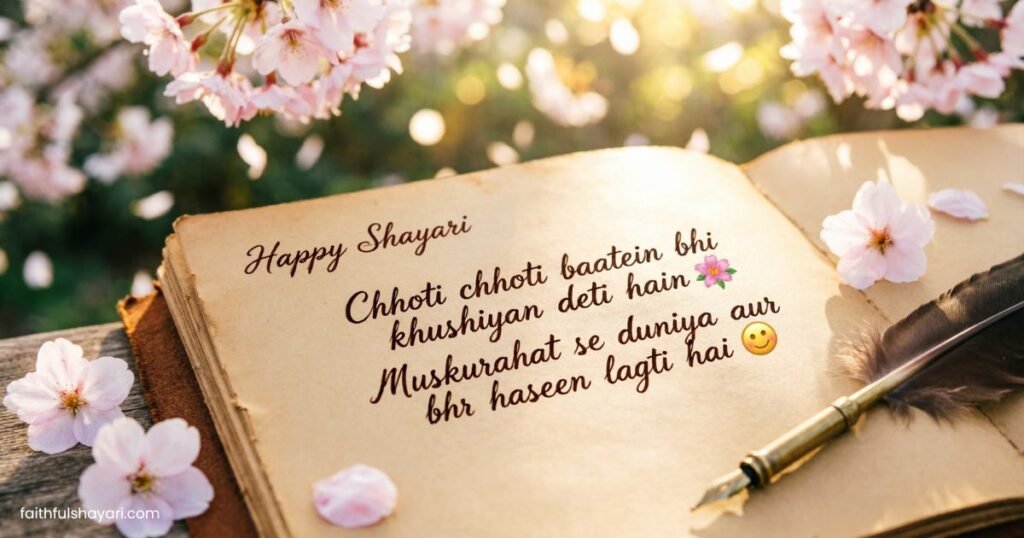 Happy Shayari
Chhoti chhoti baatein bhi
khushiyan deti hain 🌺
Muskurahat se duniya aur
bhr haseen lagti hai 🙂
faithfulshayari.com